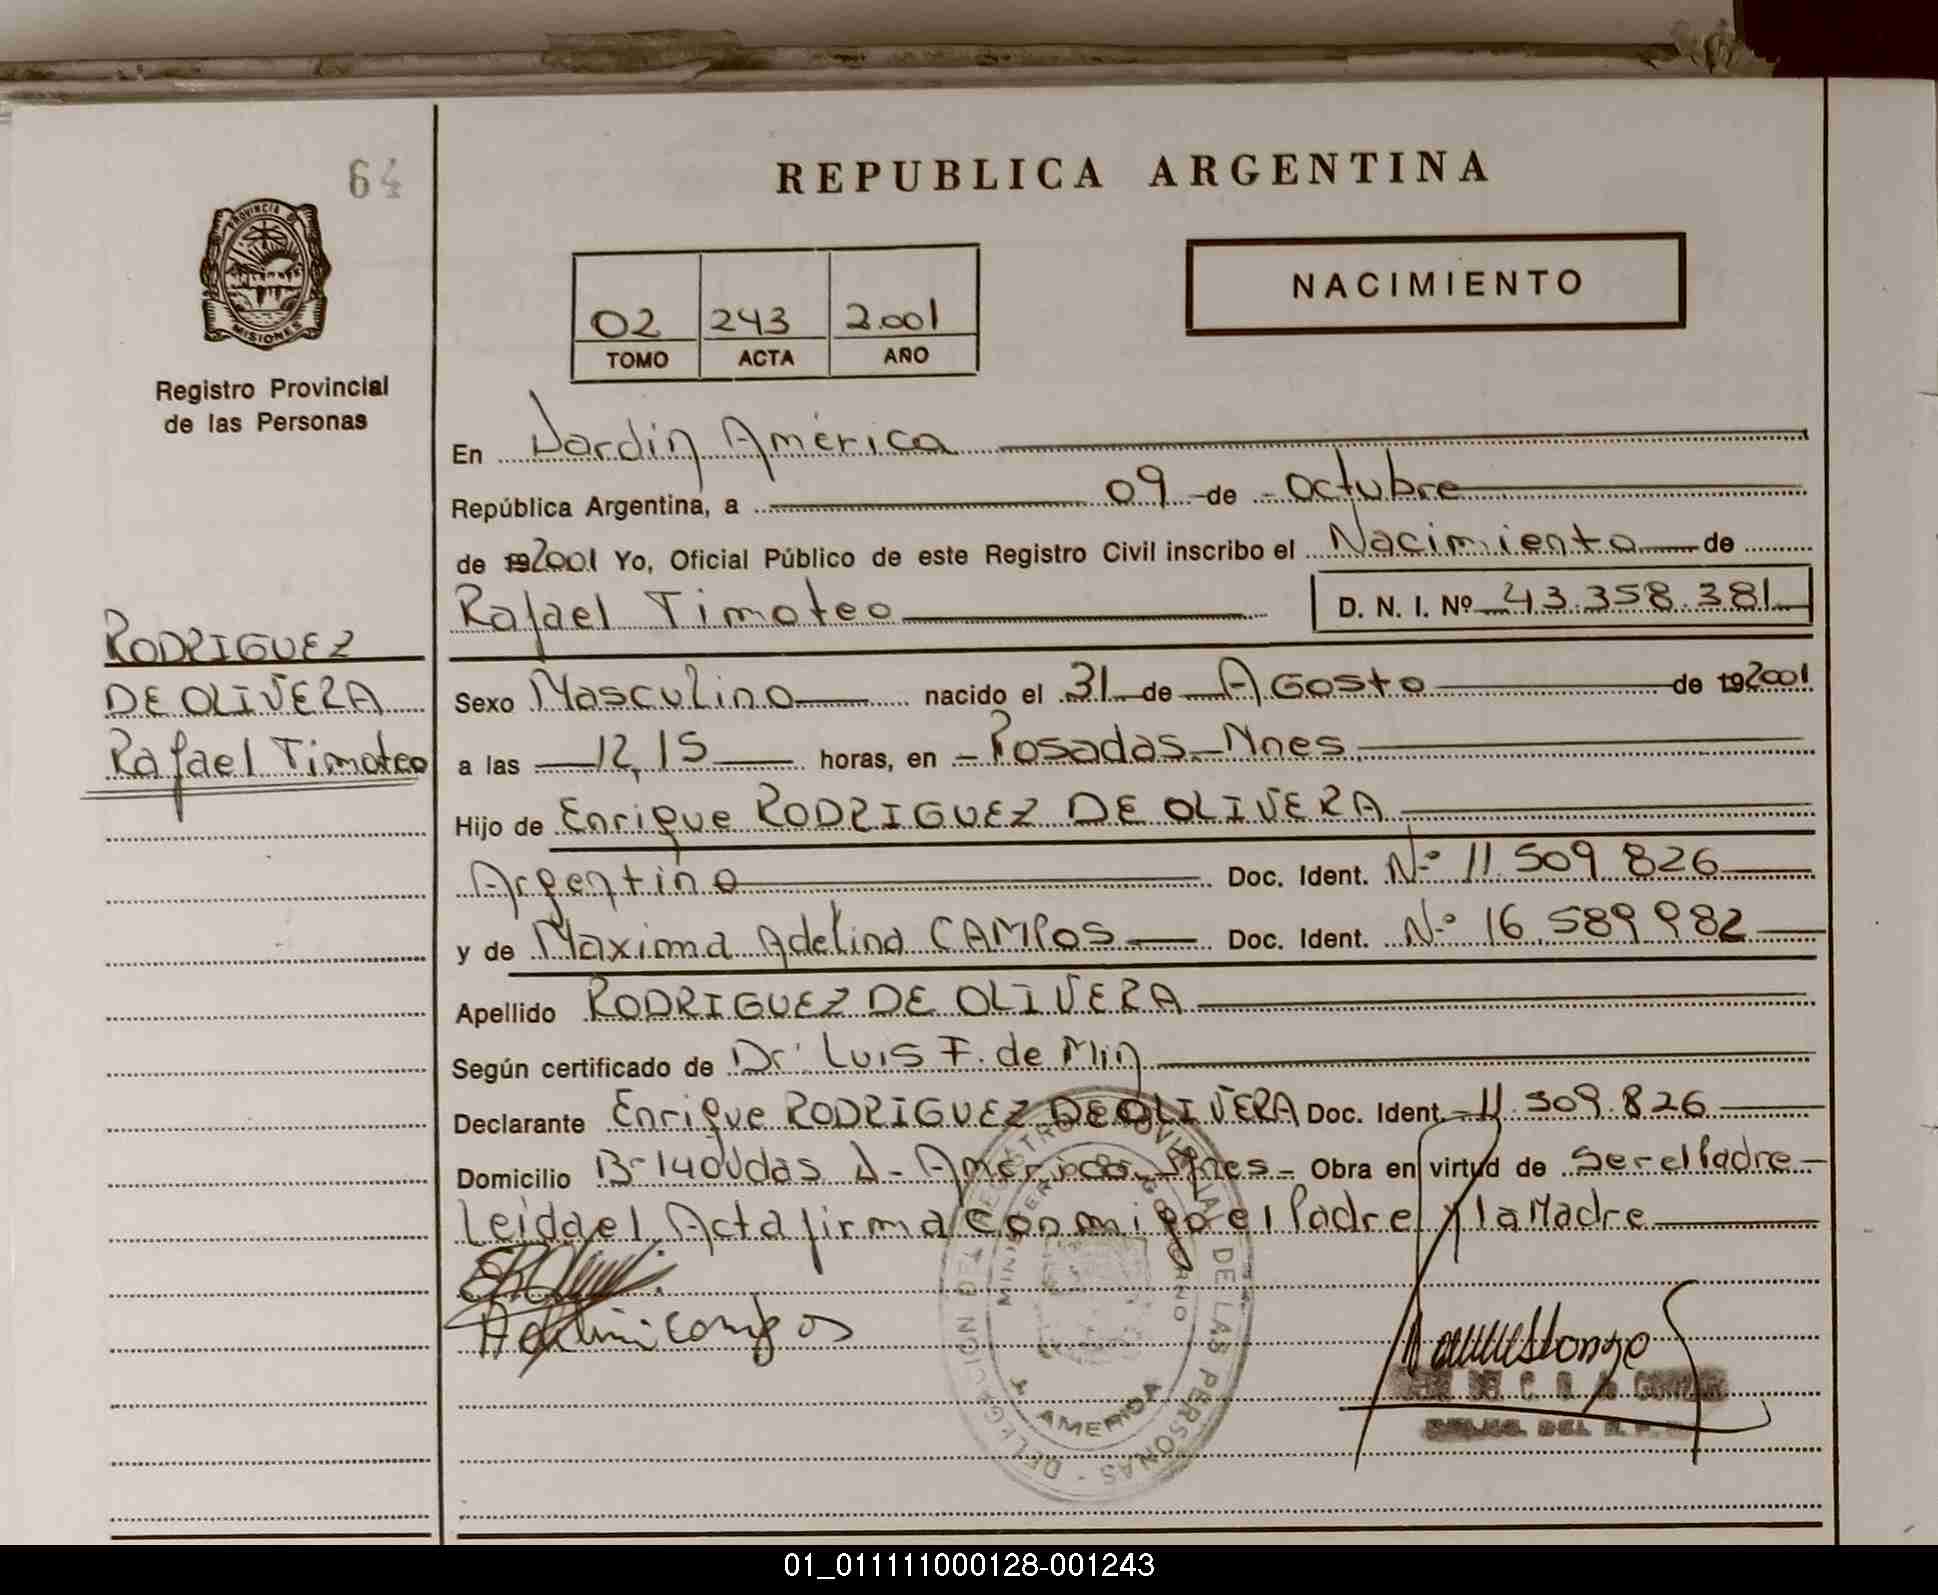 64
REPUBLICA ARGENTINA
PROVINCIA DE
MISIONES
Registro Provincial
de las Personas
NACIMIENTO
02 243 2.001
TOMO ACTA AÑO
En Jardín América
República Argentina, a 09 de Octubre
de 192001 Yo, Oficial Público de este Registro Civil inscribo el Nacimiento de
Rafael Timoteo D. N. I. Nº 43.358.381
RODRIGUEZ
DE OLIVERA
Rafael Timoteo
Sexo Masculino nacido el 31 de Agosto de 192001
a las 12,15 horas, en Posadas Mnes.
Hijo de Enrique RODRIGUEZ DE OLIVERA
Argentino Doc. Ident. Nº 11.509.826
y de Maxima Adelina CAMPOS Doc. Ident. Nº 16.589.982
Apellido RODRIGUEZ DE OLIVERA
Según certificado de Dr. Luis F. de Min
Declarante Enrique RODRIGUEZ DE OLIVERA Doc. Ident. 11.509.826
Domicilio Bº 140 Vdas J. América Mnes Obra en virtud de Ser el Padre
Leida el Acta firma conmigo el Padre y la Madre
REGISTRO PROVINCIAL DE LAS PERSONAS - DELEGACION DE
MINISTERIO GOBIERNO
J. AMERICA
01_011111000128-001243